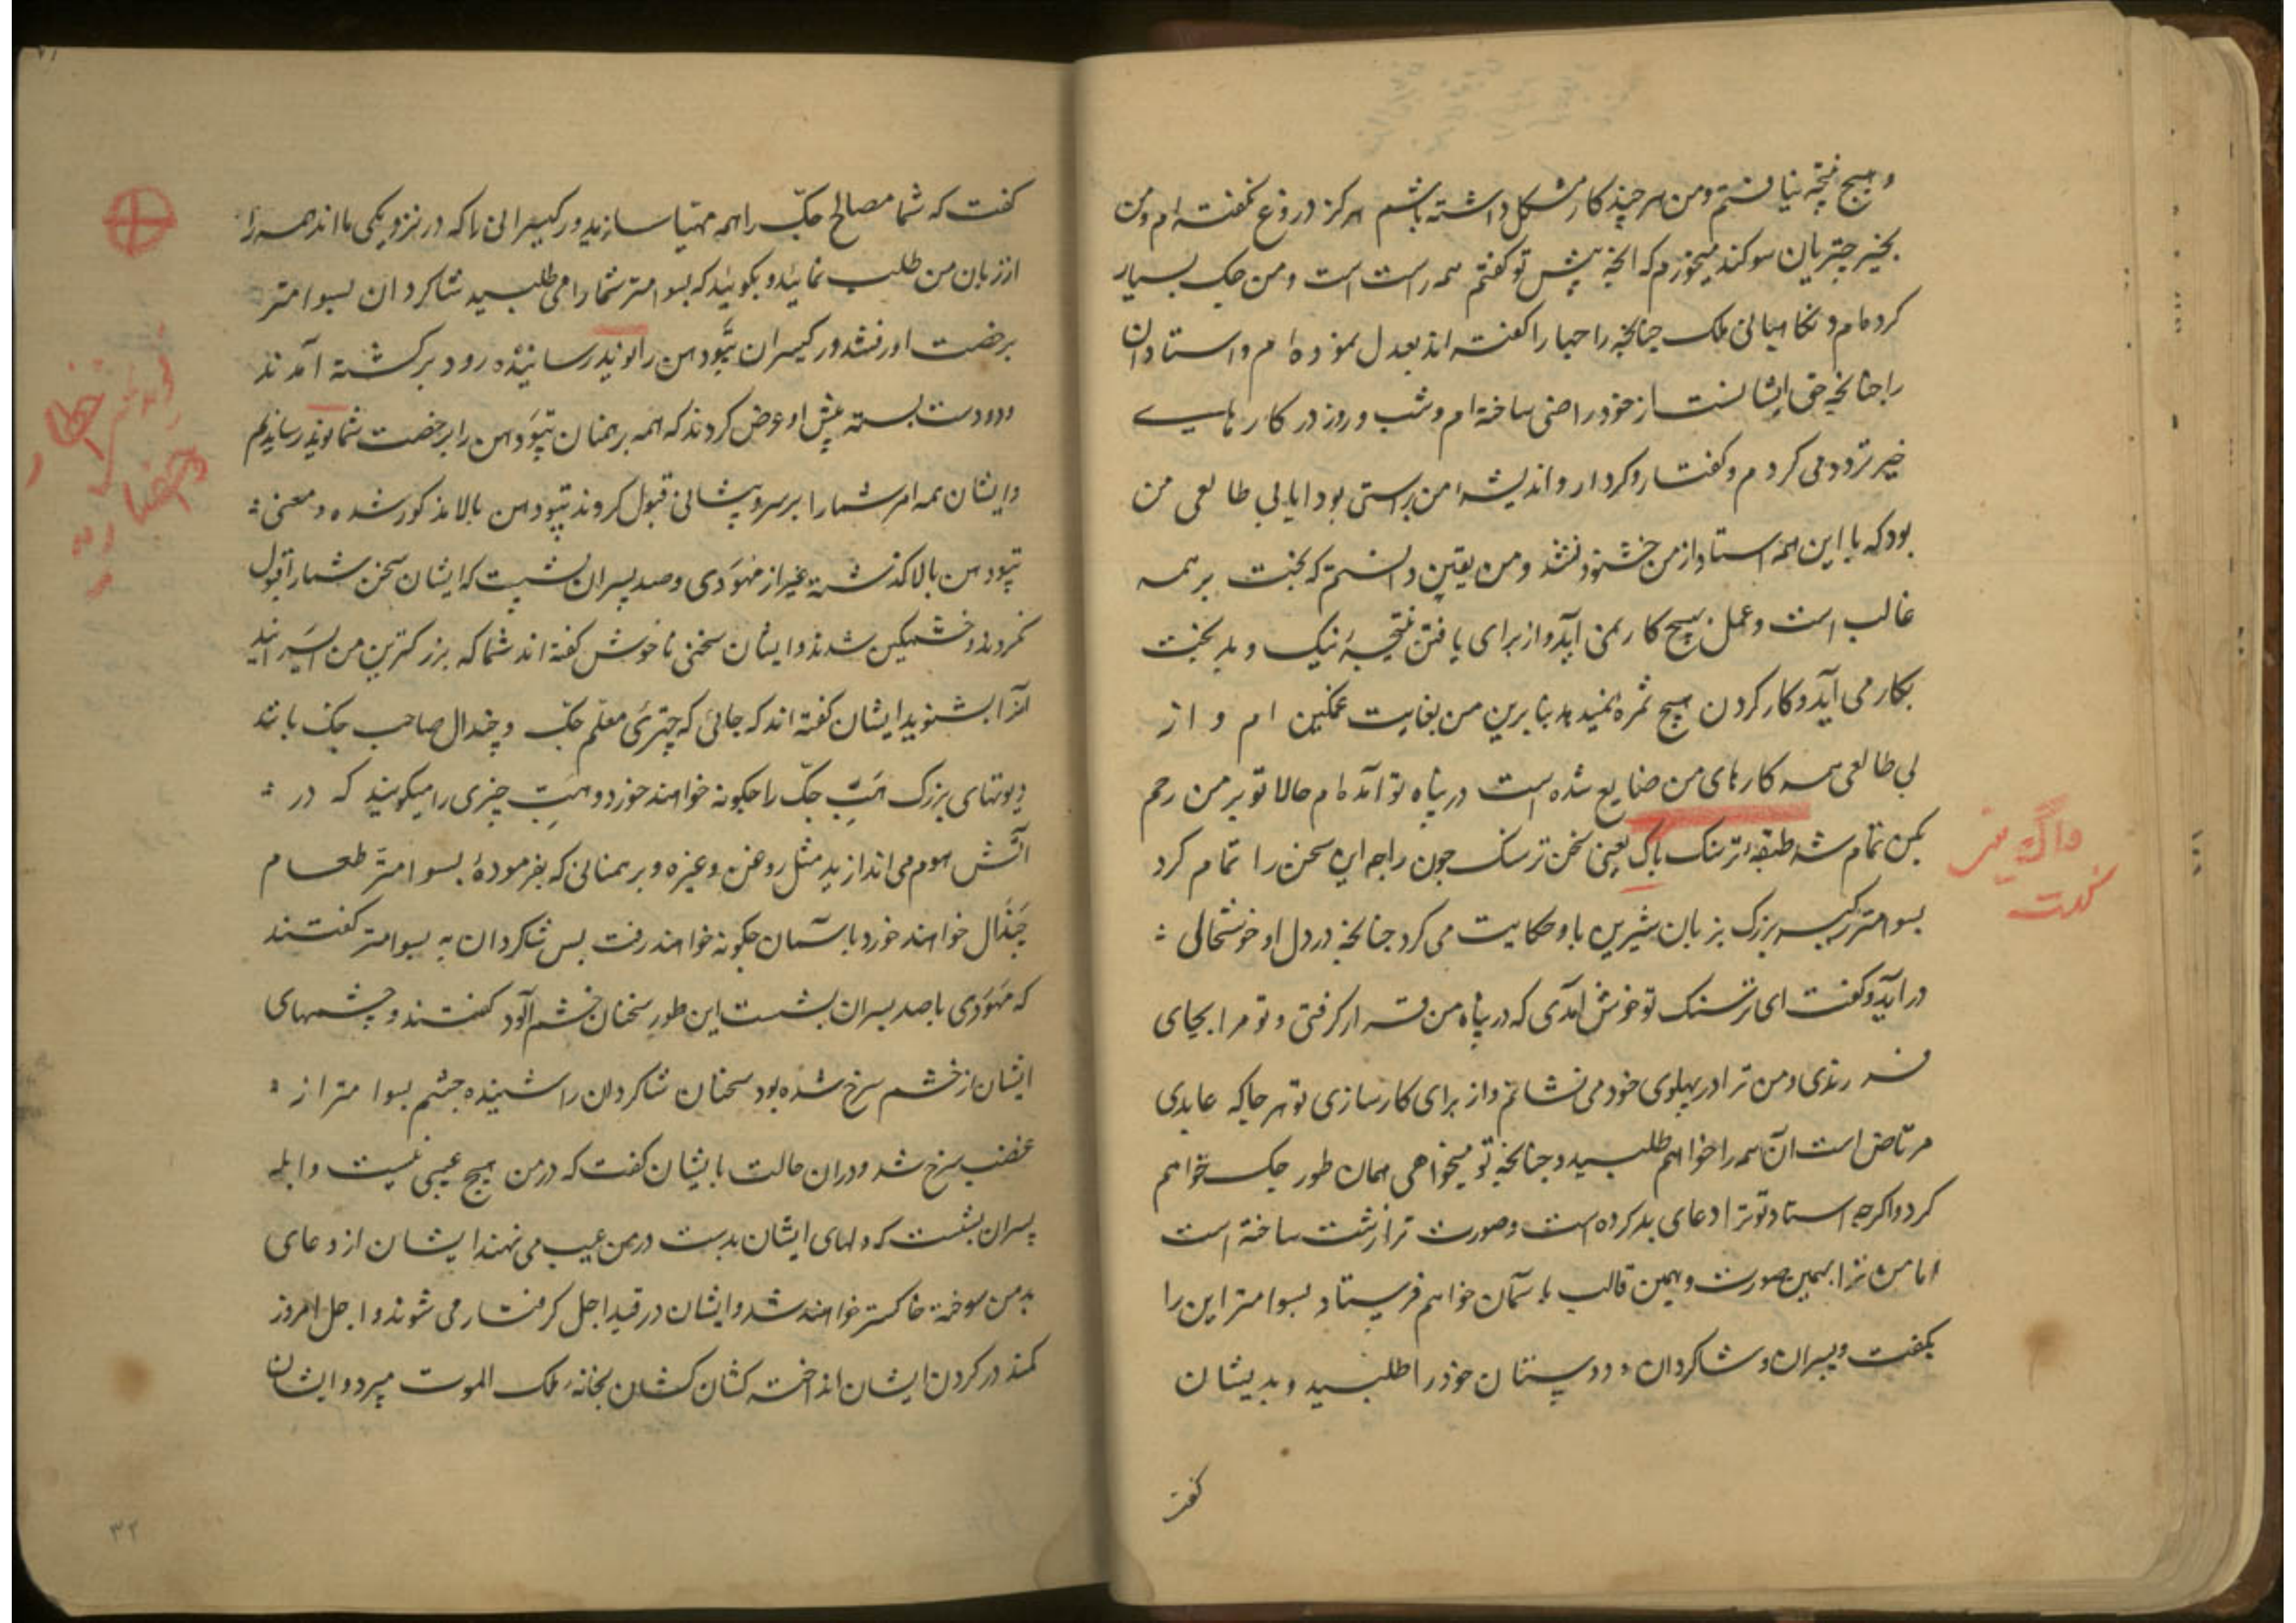 و هیچ نتیجه نیافتم و من هر چند کار مشکل داشته باشم هرکز دروغ نکفته ام و من
بخیر چتریان سوکند میخورم که انچه پیش تو کفتم همه راست است و من جک بسیار
کرده ام و نکاهبانی ملک چنانچه راجها را کفته اند بعدل نموده ام و استادان
را چنانچه حق ایشانست از خود راضی ساخته ام و شب و روز در کار های
خیر تردد می کردم و کفتار و کردار و اندیشه من براستی بود اما بی طالعی من
بود که با این همه استاد از من خشنود نشد و من یقین دانستم که بخت بر همه
غالب است و عمل هیچ کار نمی آید و از برای یافتن نتیجهٔ نیک و بد بخت
بکار می آید و کار کردن هیچ ثمره نمیدهد بنابرین من بغایت غمکین ام و از
بی طالعی همه کارهای من ضایع شده است در پناه تو آمده ام حالا تو بر من رحم
بکن تمام شد طبقه ترسنک باک یعنی سخن ترسنک چون راجه این سخن را تمام کرد
بسوامتر رکیسر بزرک بزبان شیرین با و حکایت می کرد چنانچه در دل او خوشحالی
در آید و کفت ای ترسنک تو خوش آمدی که در پناه من قرار کرفتی و تو مرا بجای
فرزندی و من ترا در پهلوی خود می نشانم و از برای کارسازی تو هر جا که عابدی
مرتاض است آن همه را خواهم طلبید و چنانچه تو میخواهی همان طور جک خواهم
کرد و اکرچه استاد تو ترا دعای بد کرده است و صورت ترا زشت ساخته است
اما من ترا بهمین صورت و بهمین قالب باسمان خواهم فرستاد بسوامتر این را
بکفت و پسران و شاکردان و دوستان خود را طلبید و بدیشان
کفت
کفت که شما مصالح جک را همه مهیا سازید و رکیسرانی را که در نزدیکی ما اند همه را
از زبان من طلب نمائید و بکوئید که بسوامتر شما را می طلبید شاکردان بسوامتر
برخصت او رفتند و رکیسران تپودهن را نوید رسانیده زود برکشته آمدند
و دو دست بسته پیش او عرض کردند که همه برهمنان تپودهن را برخصت شما نوید رساندیم
و ایشان همه امر شما را بر سر و پیشانی قبول کردند تپودهن بالا مذکور شده و معنی
تپودهن بالا کذشته غیر از مهودی و صد پسران بشیت که ایشان سخن شما را قبول
نکردند و خشمکین شدند و ایشان سخنی ناخوش کفته اند شما که بزرکترین رکیسرانید
آنرا بشنوید ایشان کفته اند که جائی که چتری معلم جک و چندال صاحب جک باشد
دیوتهای بزرک هَبِ جک را چکونه خواهند خورد و هب چیزی را میکویند که در
آتش هوم می اندازند مثل روغن و غیره و برهمنانی که بفرمودهٔ بسوامتر طعام
چندال خواهند خورد باسمان چکونه خواهند رفت پس شاکردان به بسوامتر کفتند
که مهودی با صد پسران بشست این طور سخنان خشم آلود کفتند و چشمهای
ایشان از خشم سرخ شده بود سخنان شاکردان را شنیده چشم بسوامتر از
غضب سرخ شد و دران حالت بایشان کفت که در من هیچ عیبی نیست و ابله
پسران بشست که دلهای ایشان بدست در من عیب می نهند ایشان از دعای
بد من سوخته خاکستر خواهند شد و ایشان در قید اجل کرفتار می شوند و اجل امروز
کمند در کردن ایشان انداخته کشان کشان بخانهٔ ملک الموت میبرد و ایشان
۳۲